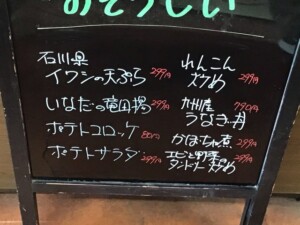 おそうしい
石川県
イワシの天ぷら 299円
いなだの竜田揚 299円
ポテトコロッケ 80円
ポテトサラダ 299円
れんこん
炒め 299円
九州産 790円
うなぎ丼
かぼちゃ煮 299円
エビと野菜 299円
タンドリー炒め